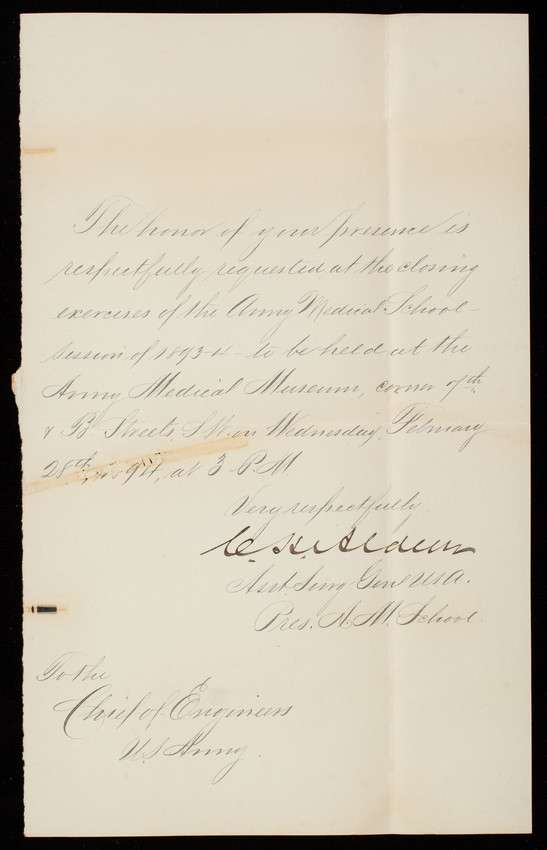 The honor of your presence is
respectfully requested at the closing
exercises of the Army Medical School –
session of 1893-4 – to be held at the
Army Medical Museum, corner 7th
& B Streets, S.W. on Wednesday, February
28th, 94, at 3 P.M.
Very respectfully
C. H. Alden
Asst. Surg Genl U.S.A.
Pres. A. M. School
To the
Chief of Engineers
U.S. Army.